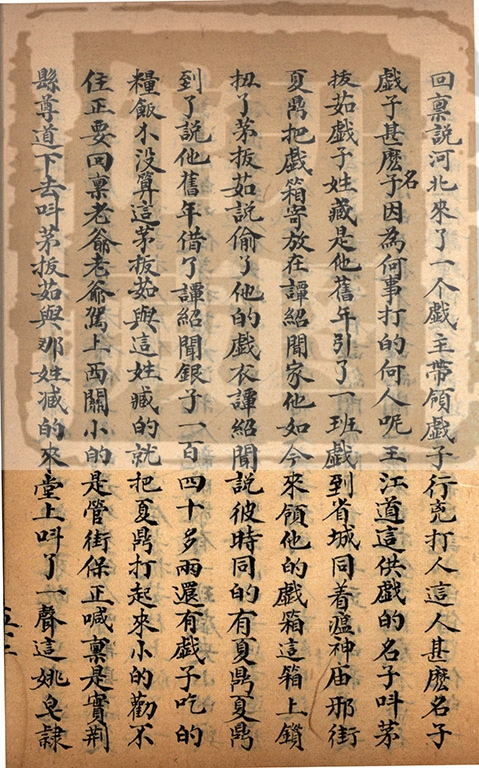 回禀說河北來了一个戲主帶領戲子行兇打人這人甚麽名子
戲子甚麽名子因為何事打的何人呢王江道這供戲的名子呌茅
拔茹戲子姓臧是他舊年引了一班戲到省城同着瘟神庙邪街
夏鼎把戲箱寄放在譚紹聞家他如今來領他的戲箱這箱上鎖
扭了茅拔茹說偷了他的戲衣譚紹聞說彼時同的有夏鼎夏鼎
到了說他舊年借了譚紹聞銀子一百四十多兩還有戲子吃的
糧飯不没算這茅拔茹與這姓臧的就把夏鼎打起來小的勸不
住正要回禀老爺老爺駕上西關小的是管街保正喊禀是實荆
縣尊道下去呌茅拔茹與那姓臧的來堂上呌了一聲這姚皂隸